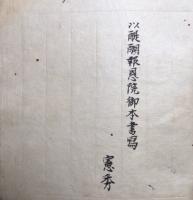 以醍醐報恩院御本書写
憲秀